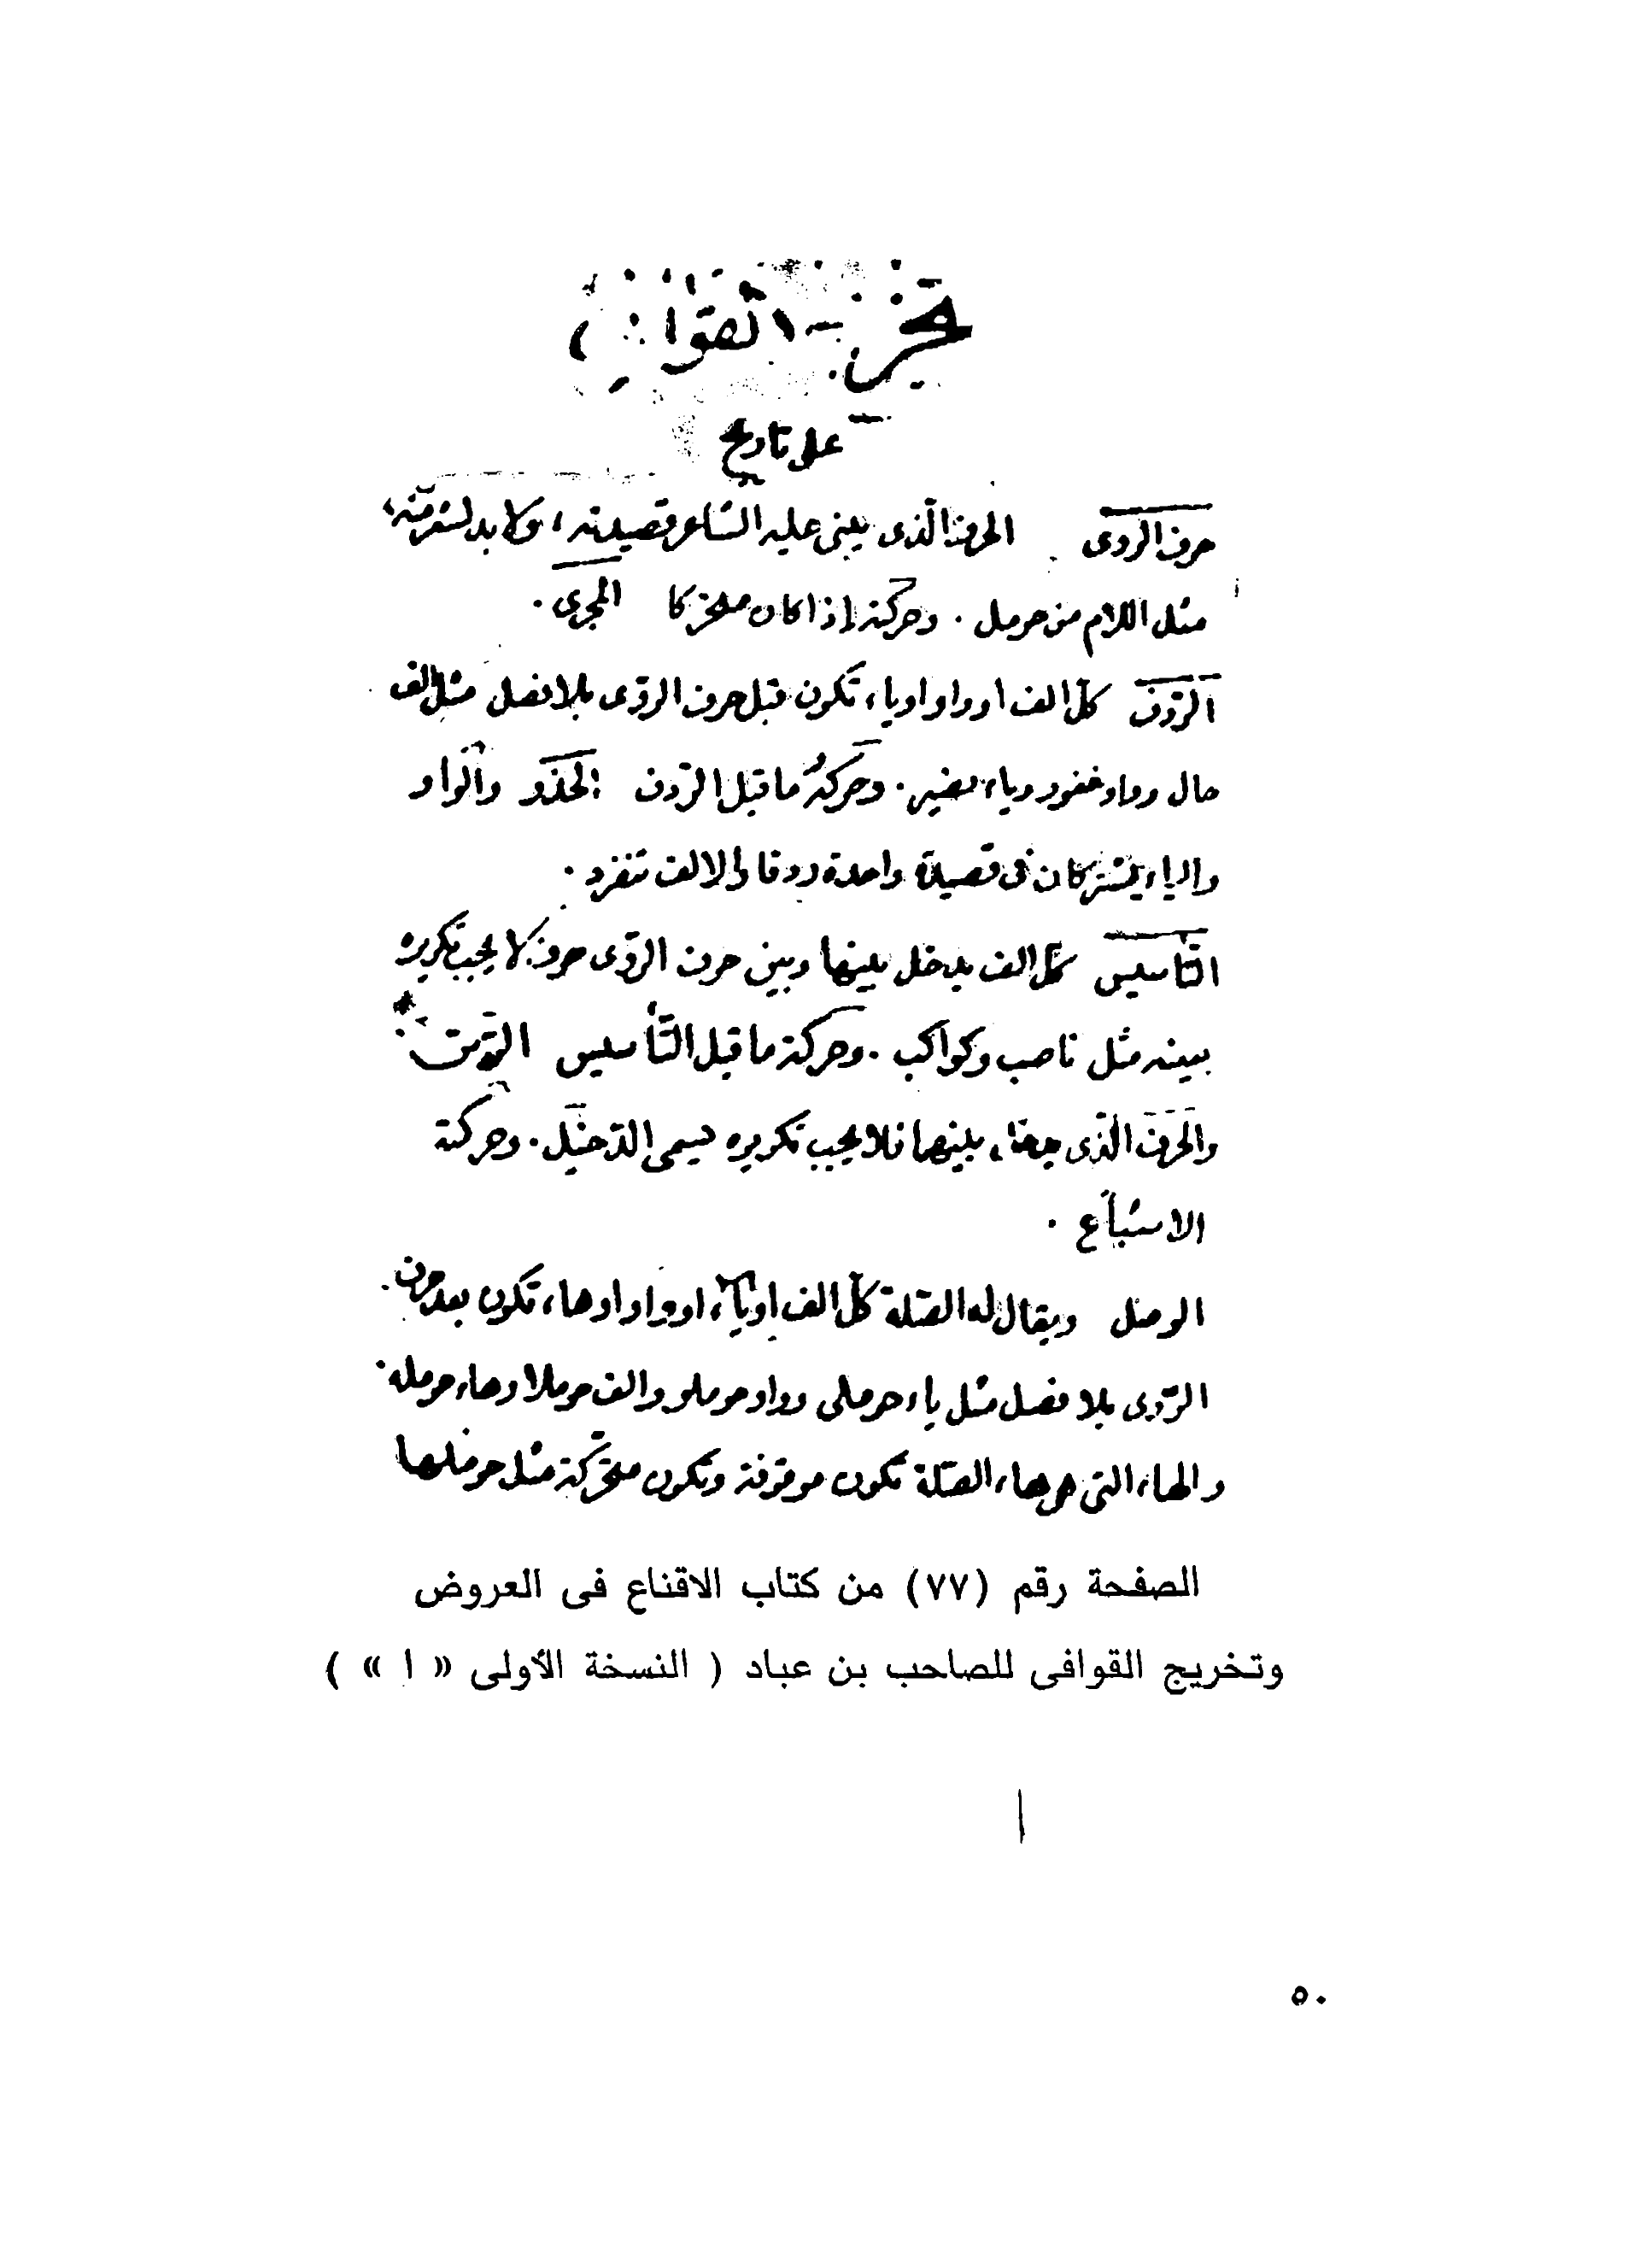 تخريج القوافي
على تاريخ
حرف الروى الحرف الذى يبنى عليه الشاعر قصيدته، ولا بد لشعر منه،
مثل اللام من حومل. وحركته إذا كان متحركا المجرى.
الرّدف كلّ الف او واو او ياء تكون قبل حرف الروّى بلا فصل مثل الف
حال وواو غفور وياء بصير. وحركة ما قبل الرّدف الحذو والواو
والياء يشتركان فى قصيدة واحدة ردفا والالف تنفرد.
التّأسيس كلّ الف يدخل بينها وبين حرف الروّى حرف لا يجب تكريره
بعينه مثل ناصب وكواكب. وحركة ما قبل التّأسيس الرّس
والحرف الذّى بينهما فلا يجب تكريره يسمى الدّخيل. وحركته
الاشباع.
الوصل ويقال له الصّلة كلّ الف او ياء، او واو او هاء، تكون بعد حرف
الرّوى بلا فصل مثل ياء حوملى وواو حوملو والف حوملا وهاء حومله.
والهاء التى هى هاء الصّلة تكون موقوفة وتكون متحرّكة مثل حوملها
الصفحة رقم (٧٧) من كتاب الاقناع فى العروض
وتخريج القوافى للصاحب بن عباد ( النسخة الأولى « ا » )
٥٠